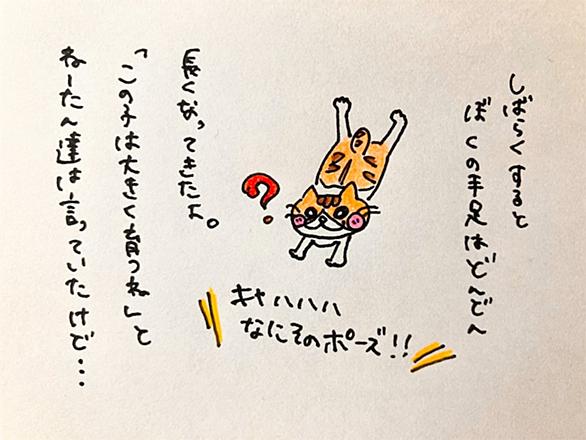 しばらくすると
ぼくの手足はどんどん
長くなってきたよ。
「この子は大きく育つね」と
ねーたん達は言っていたけど・・・
?
キャハハハ
なにそのポーズ!!